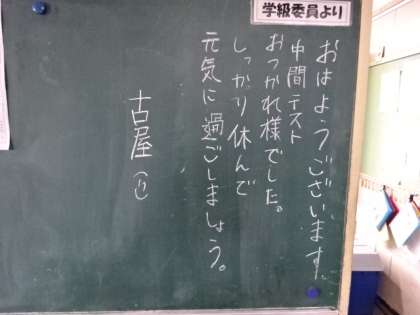 学級委員より
おはようございます。
中間テスト
おつかれ様でした。
しっかり休んで
元気に過ごしましょう。
古屋